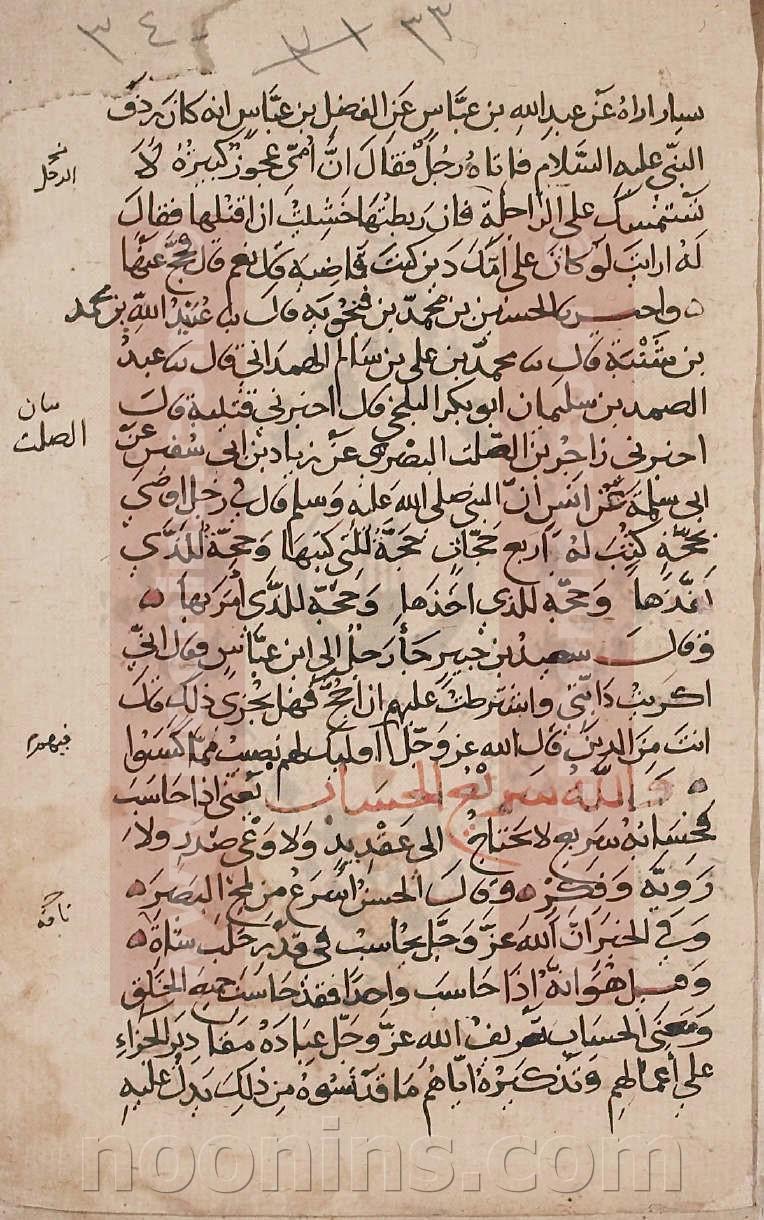 ٣٣ ٣٤
سيار اراهُ عَنْ عبدِ اللهِ بن عبَّاسٍ عَن الفضل بن عبَّاسٍ انه كان ردف
النبىّ عليه السَّلامِ فاتاهُ رَجُلٌ فقال انَّ اُمّى عجوزٌ كبيرةٌ لا
تستمسك على الراحلة فان ربطتُها خشيت ان اقتلها فقال
لهُ ارايت لو كان على امّك دين كنت قاضيه قال نعم قال فحجَّ عنها
واخبرنا الحسين بن محمّد بن فنجويه قال نا عُبَيْدُ اللهِ بن محمد
بن شَنْبَة قال نا محمّد بن على بن سالم الهمدانى قال نا عبدُ
الصمد بن سليمان ابو بكر البلخى قال اخبرنى قتيبة قال
اخبرنى زاجر بن الصّلت البصرى عن زياد بن ابى سُفين عَنْ
ابى سلمة عَنْ انس انّ النبى صلى الله عليه وسلم قال فى رجلٍ اوصى
بحجّةٍ كُتِبَ لَهُ اربع حجّاتٍ حجّة للذى كتبها وحجّة للّذى
انفذها وحجّة للذى اخذها وحجّة للذى اَمَرَ بها
وقال سعيد بن جبير جأ رجلٌ الى ابن عبّاسٍ فقال انّى
اكريت دابّتى واشترطت عليهم ان احجّ فهل يجزى ذلك قال
انت من الذين قال الله عز وجلّ اوليك لهم نصيبٌ ممّا كسبوا
واللّٰهُ سَريْعُ الحسَابِ يعنى اذا حاسَبَ
فحسابُهُ سَريع لا يحتاجُ الى عَقْدِ يدٍ ولا وَعْىِ صَدْرٍ ولا
رَويّةٍ وفِكْرٍ وقال الحسنُ اسرعُ مِن لمح البصرِ
وفى الخبر انّ الله عزّ وجلّ يحاسب فى قدْر حلب شاةٍ
وقيل هُوَ انّهُ اِذَا حَاسَبَ واحدًا فقد حاسَبَ جميع الخلق
ومعنى الحساب تعريف الله عزّ وجلّ عبادَهُ مقاديرَ الجزاءِ
على اَعمالهم وتذكيرُهُ ايّاهُم مَا قَدْ نَسُوهُ مِن ذلِكَ يدلّ عليه
الرحل
الصلت
ناقة
noonins.com